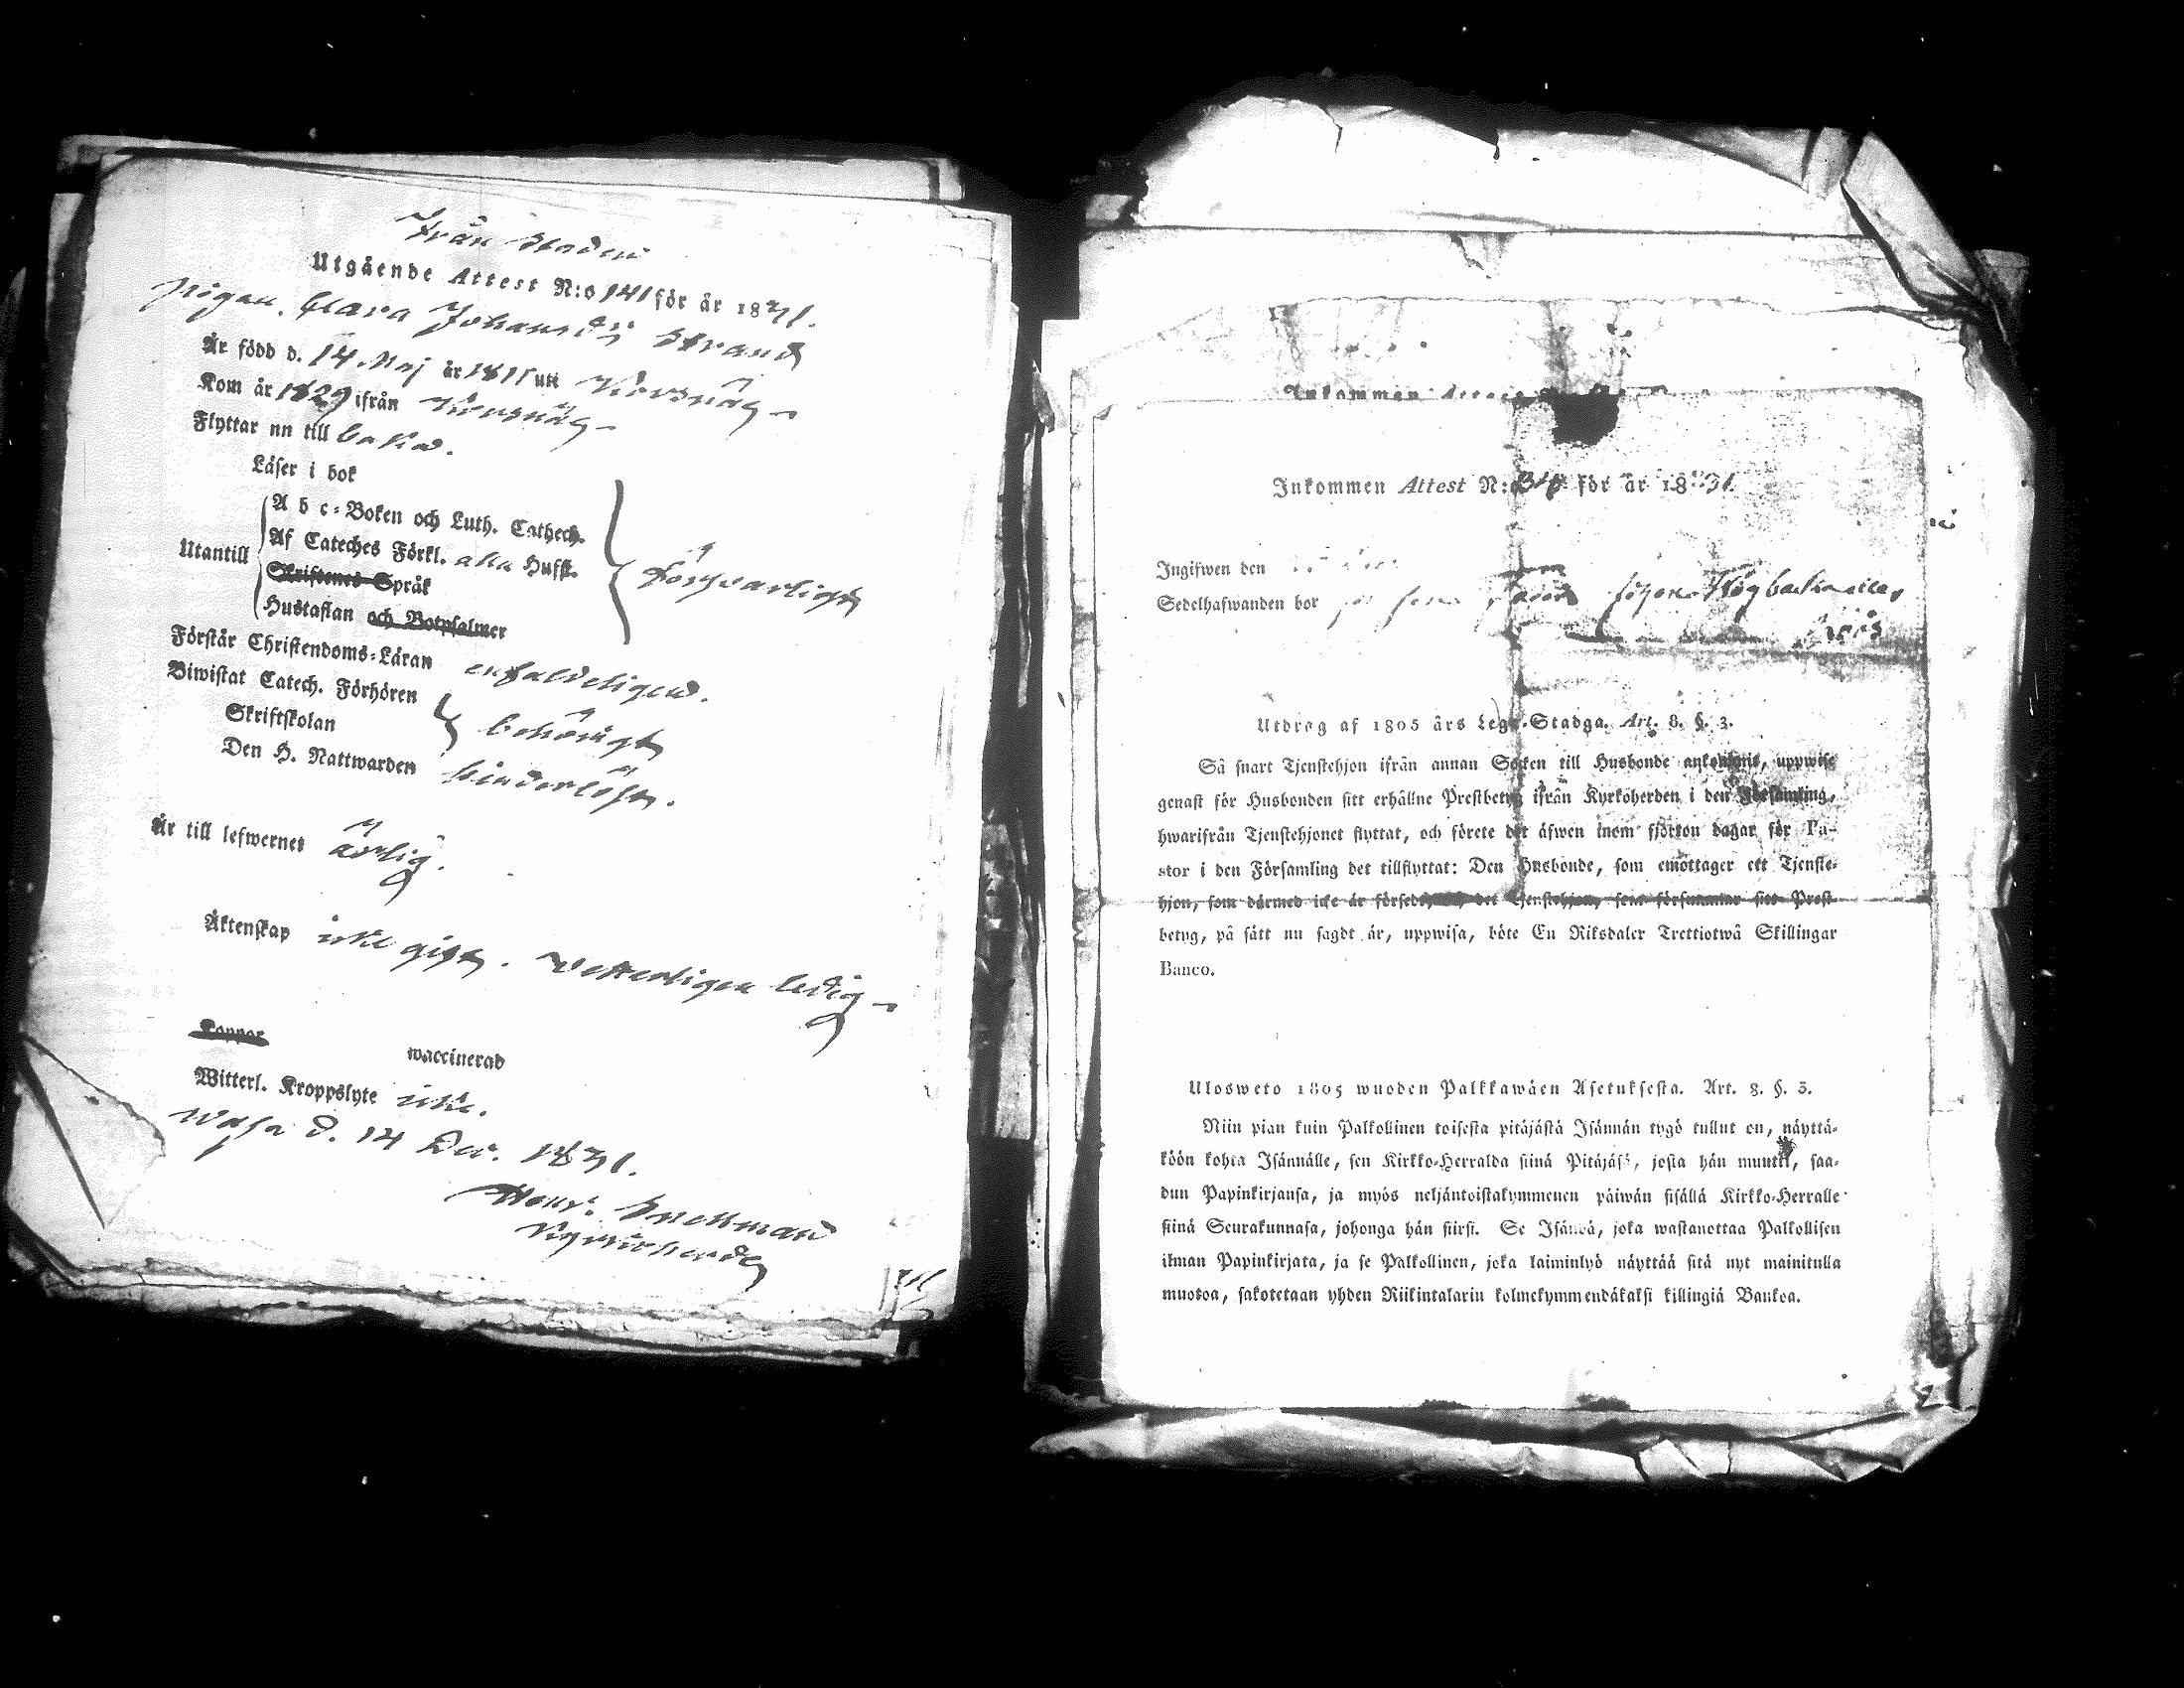 Från Staden
Utgående Attest N:o 141 för år 1831.
Pigan Clara Johansdr Strand
Är född d. 14 Maj år 1811 uti Korsnäs
Kom år 1829 ifrån Korsnäs
Flyttar nu till baka.
Läser i bok
A b c-Boken och Luth. Cathech.
Af Cateches Förkl. alla Hufst.
Utantill
Skriftenes Språk
försvarligt
Hustaflan och Botpsalmer
Förstår Christendoms-Läran enfaldeligen.
Biwistat Catech. Förhören
Skriftskolan
behörigt
Den H. Nattwarden hinderlöst.
Är till lefwernet ärlig.
Äktenskap icke gift. Vetterligen ledig
Koppor
waccinerad
Witterl. Kroppslyte icke.
Wasa d. 14 Dec. 1831.
Snellman
Kyrkoherde
Inkommen Attest
Inkommen Attest N:o för år 1831
Ingifwen den
Sedelhafwanden bor
Utdrag af 1805 års Lego-Stadga. Art. 8. §. 3.
Så snart Tjenstehjon ifrån annan Socken till Husbonde ankommit, uppwise
genast för Husbonden sitt erhållne Prestbetyg ifrån Kyrkoherden i den Församling,
hwarifrån Tjenstehjonet flyttat, och förete det äfwen inom fjorton dagar för Pa-
stor i den Församling det tillflyttat: Den Husbonde, som emottager ett Tjenste-
hjon, som dermed icke är försedt, det Tjenstehjon, som försummar sitt Prest-
betyg, på sätt nu sagdt är, uppwisa, böte En Riksdaler Trettiotwå Skillingar
Banco.
Ulosweto 1805 wuoden Palkkawäen Asetuksesta. Art. 8. §. 3.
Niin pian kuin Palkollinen toisesta pitäjästä Isännän tygö tullut on, näyttä-
köön kohta Isännälle, sen Kirkko-Herralda siinä Pitäjäsä, josta hän muutti, saa-
dun Papinkirjansa, ja myös neljäntoistakymmenen päiwän sisällä Kirkko-Herralle
siinä Seurakunnasa, johonga hän siirsi. Se Isändä, joka wastanottaa Palkollisen
ilman Papinkirjata, ja se Palkollinen, joka laiminlyö näyttää sitä nyt mainitulla
muotoa, sakotetaan yhden Riikintalarin kolmekymmendäkaksi killingiä Bankoa.